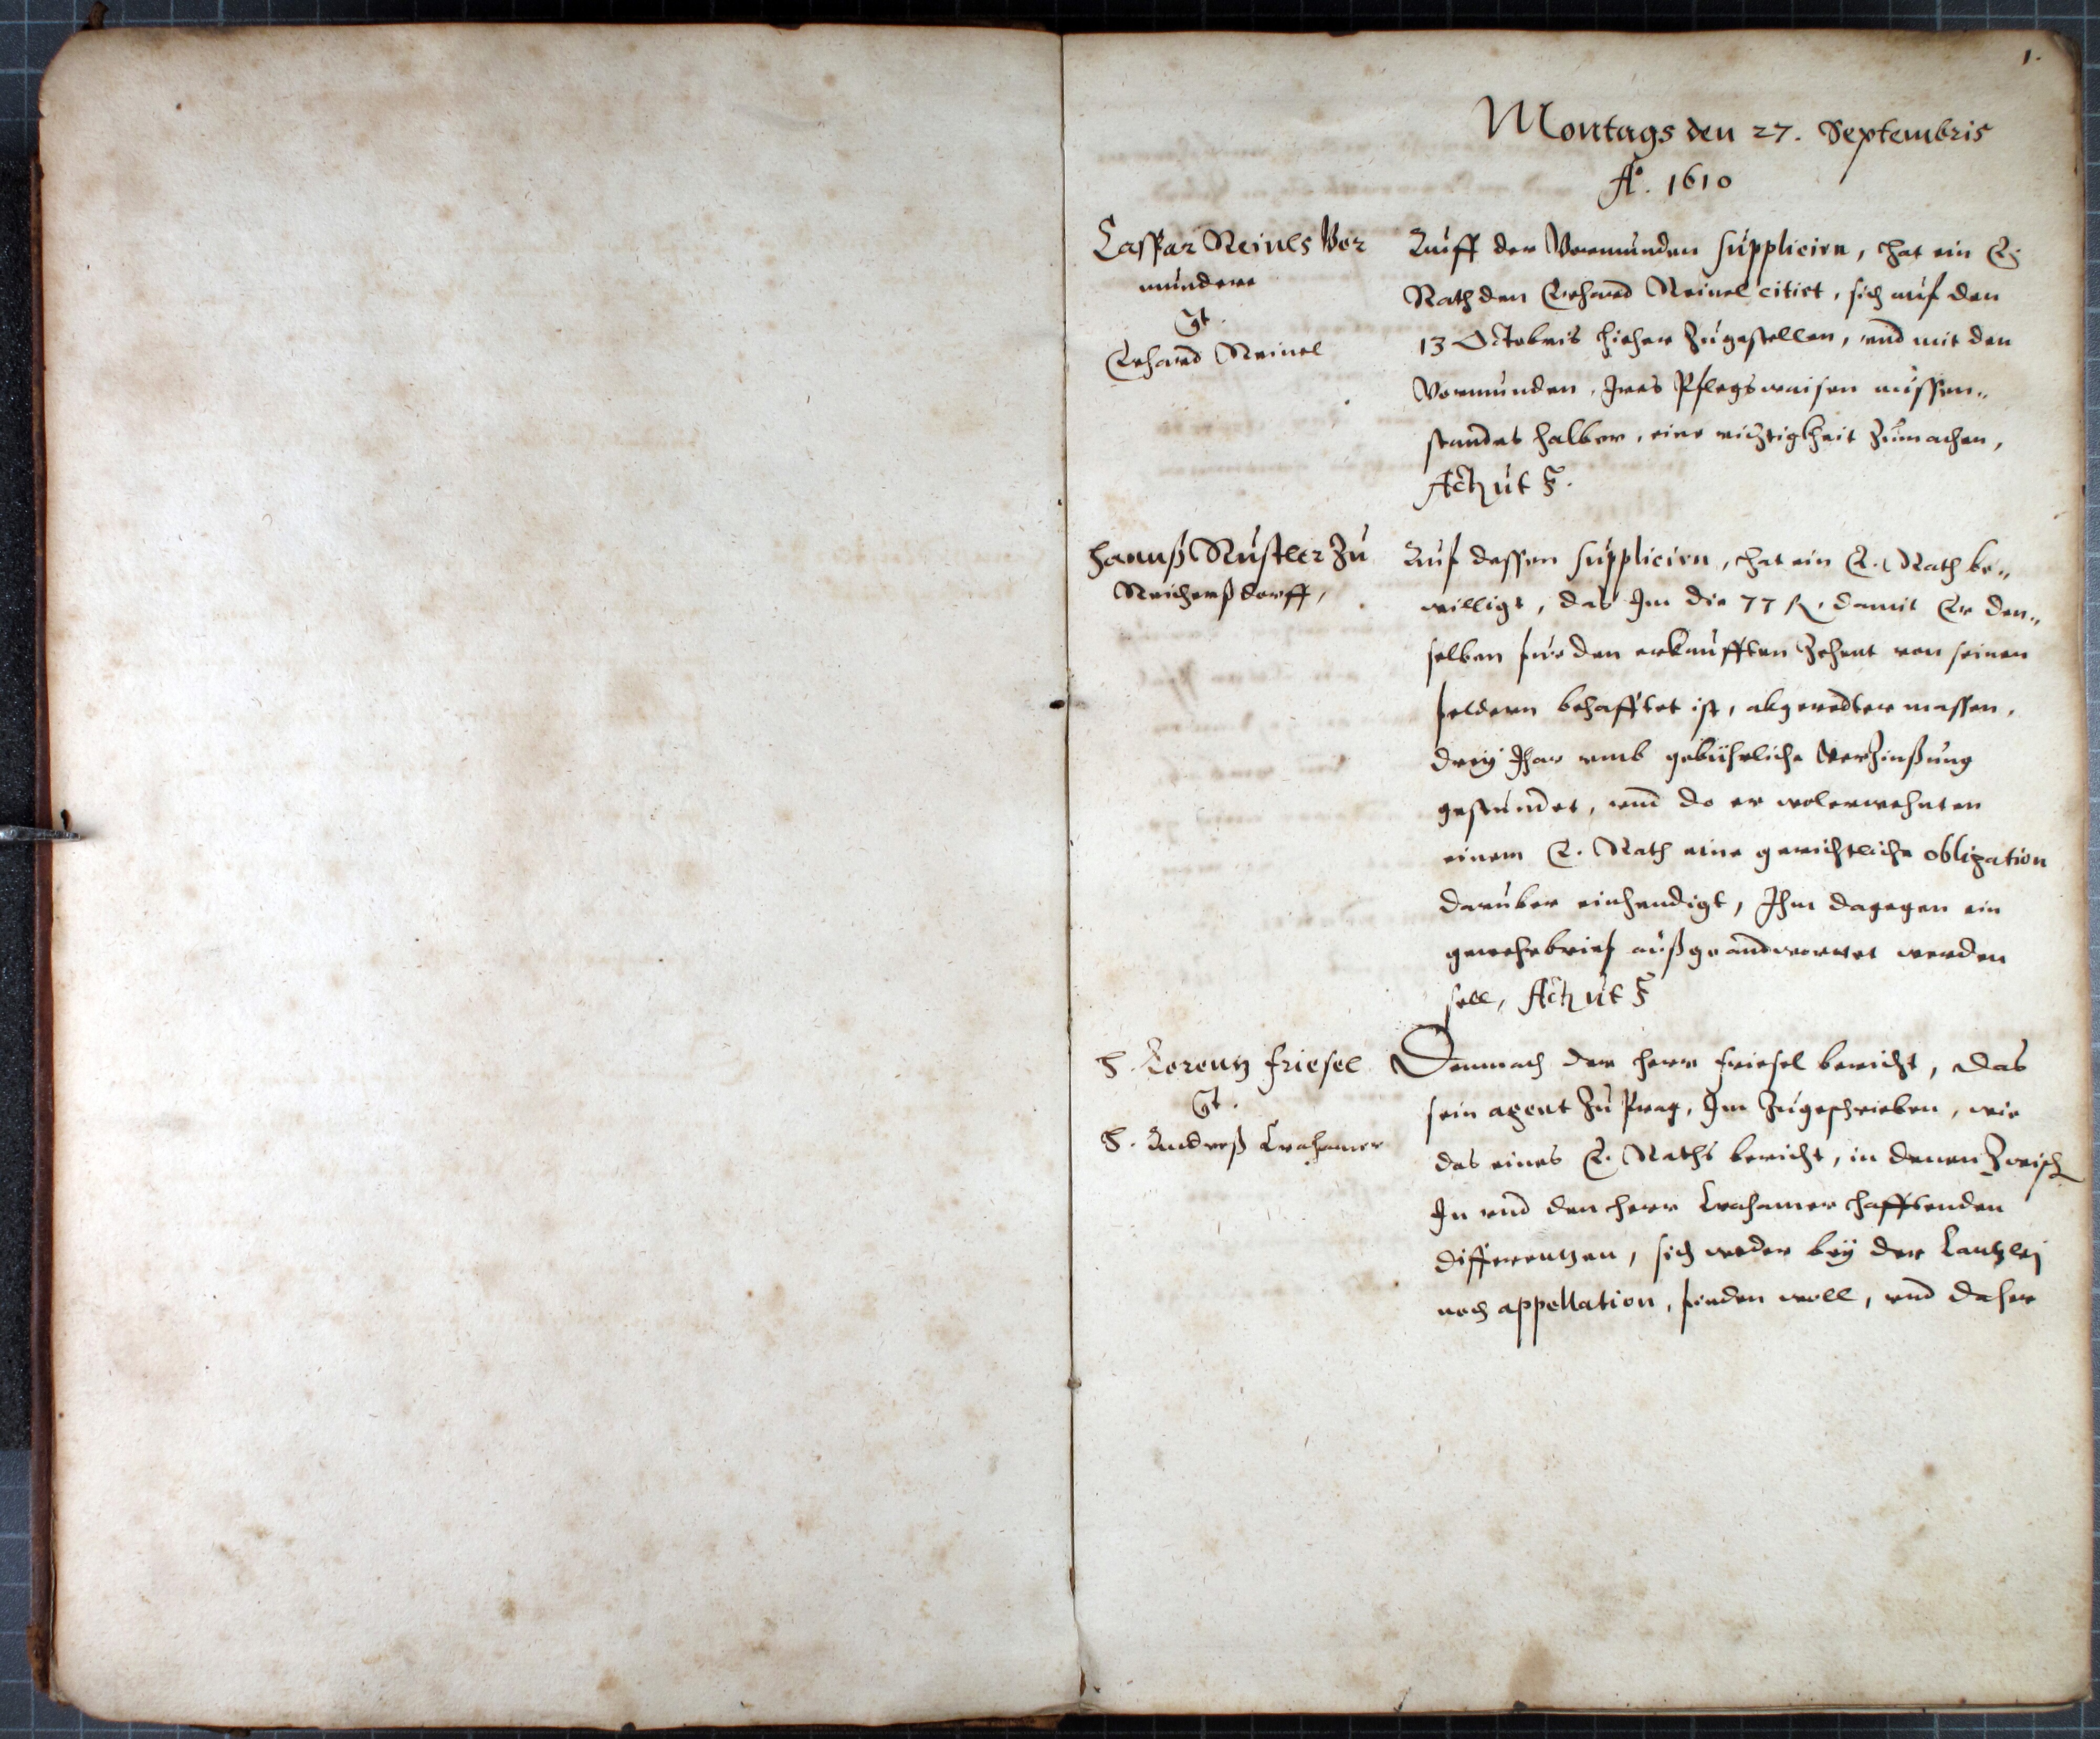 1.
Montags den 27. Septembris
Aº. 1610
Caspar Reinls Vor
mundere
Ct.
Erhard Reinel
Auff der Vormunden supplicirn, hat ein E.
Rath den Erhard Reinel citirt, sich auf den
13 Octobris hieher zugestellen, und mit den
Vormunden, Ires Pflegswaisen aussen„
standes halber, eine richtigkheit zumachen,
Act. ut s.
Hannß Rustler zu
Reicherßdorff,
Auf dessen supplicirn, hat ein E. Rath be„
willigt, das Im die 77 R. damit Er den„
selben fur den erkaufften Zehent von seinen
feldern behafftet ist, abgeredter massen,
drey Jhar umb gebührliche verzinßung
gestundet, und do er wolermehnten
einem E. Rath eine gerichtliche obligation
daruber einhendigt, Ihm dagegen ein
gewehrbrief außgeandworttet werden
soll, Act. ut s
H. Lorentz Friesel
Ct.
H. Andreß Crahamer
Demnach der herr Friesel bericht, das
sein agent zu Prag, Im zugeschrieben, wie
das eines E. Raths bericht, in denen zwisch
In und den herr Crahamer hafftenden
differentzen, sich weder bey der Cantzlej
noch appellation, finden woll, und daher